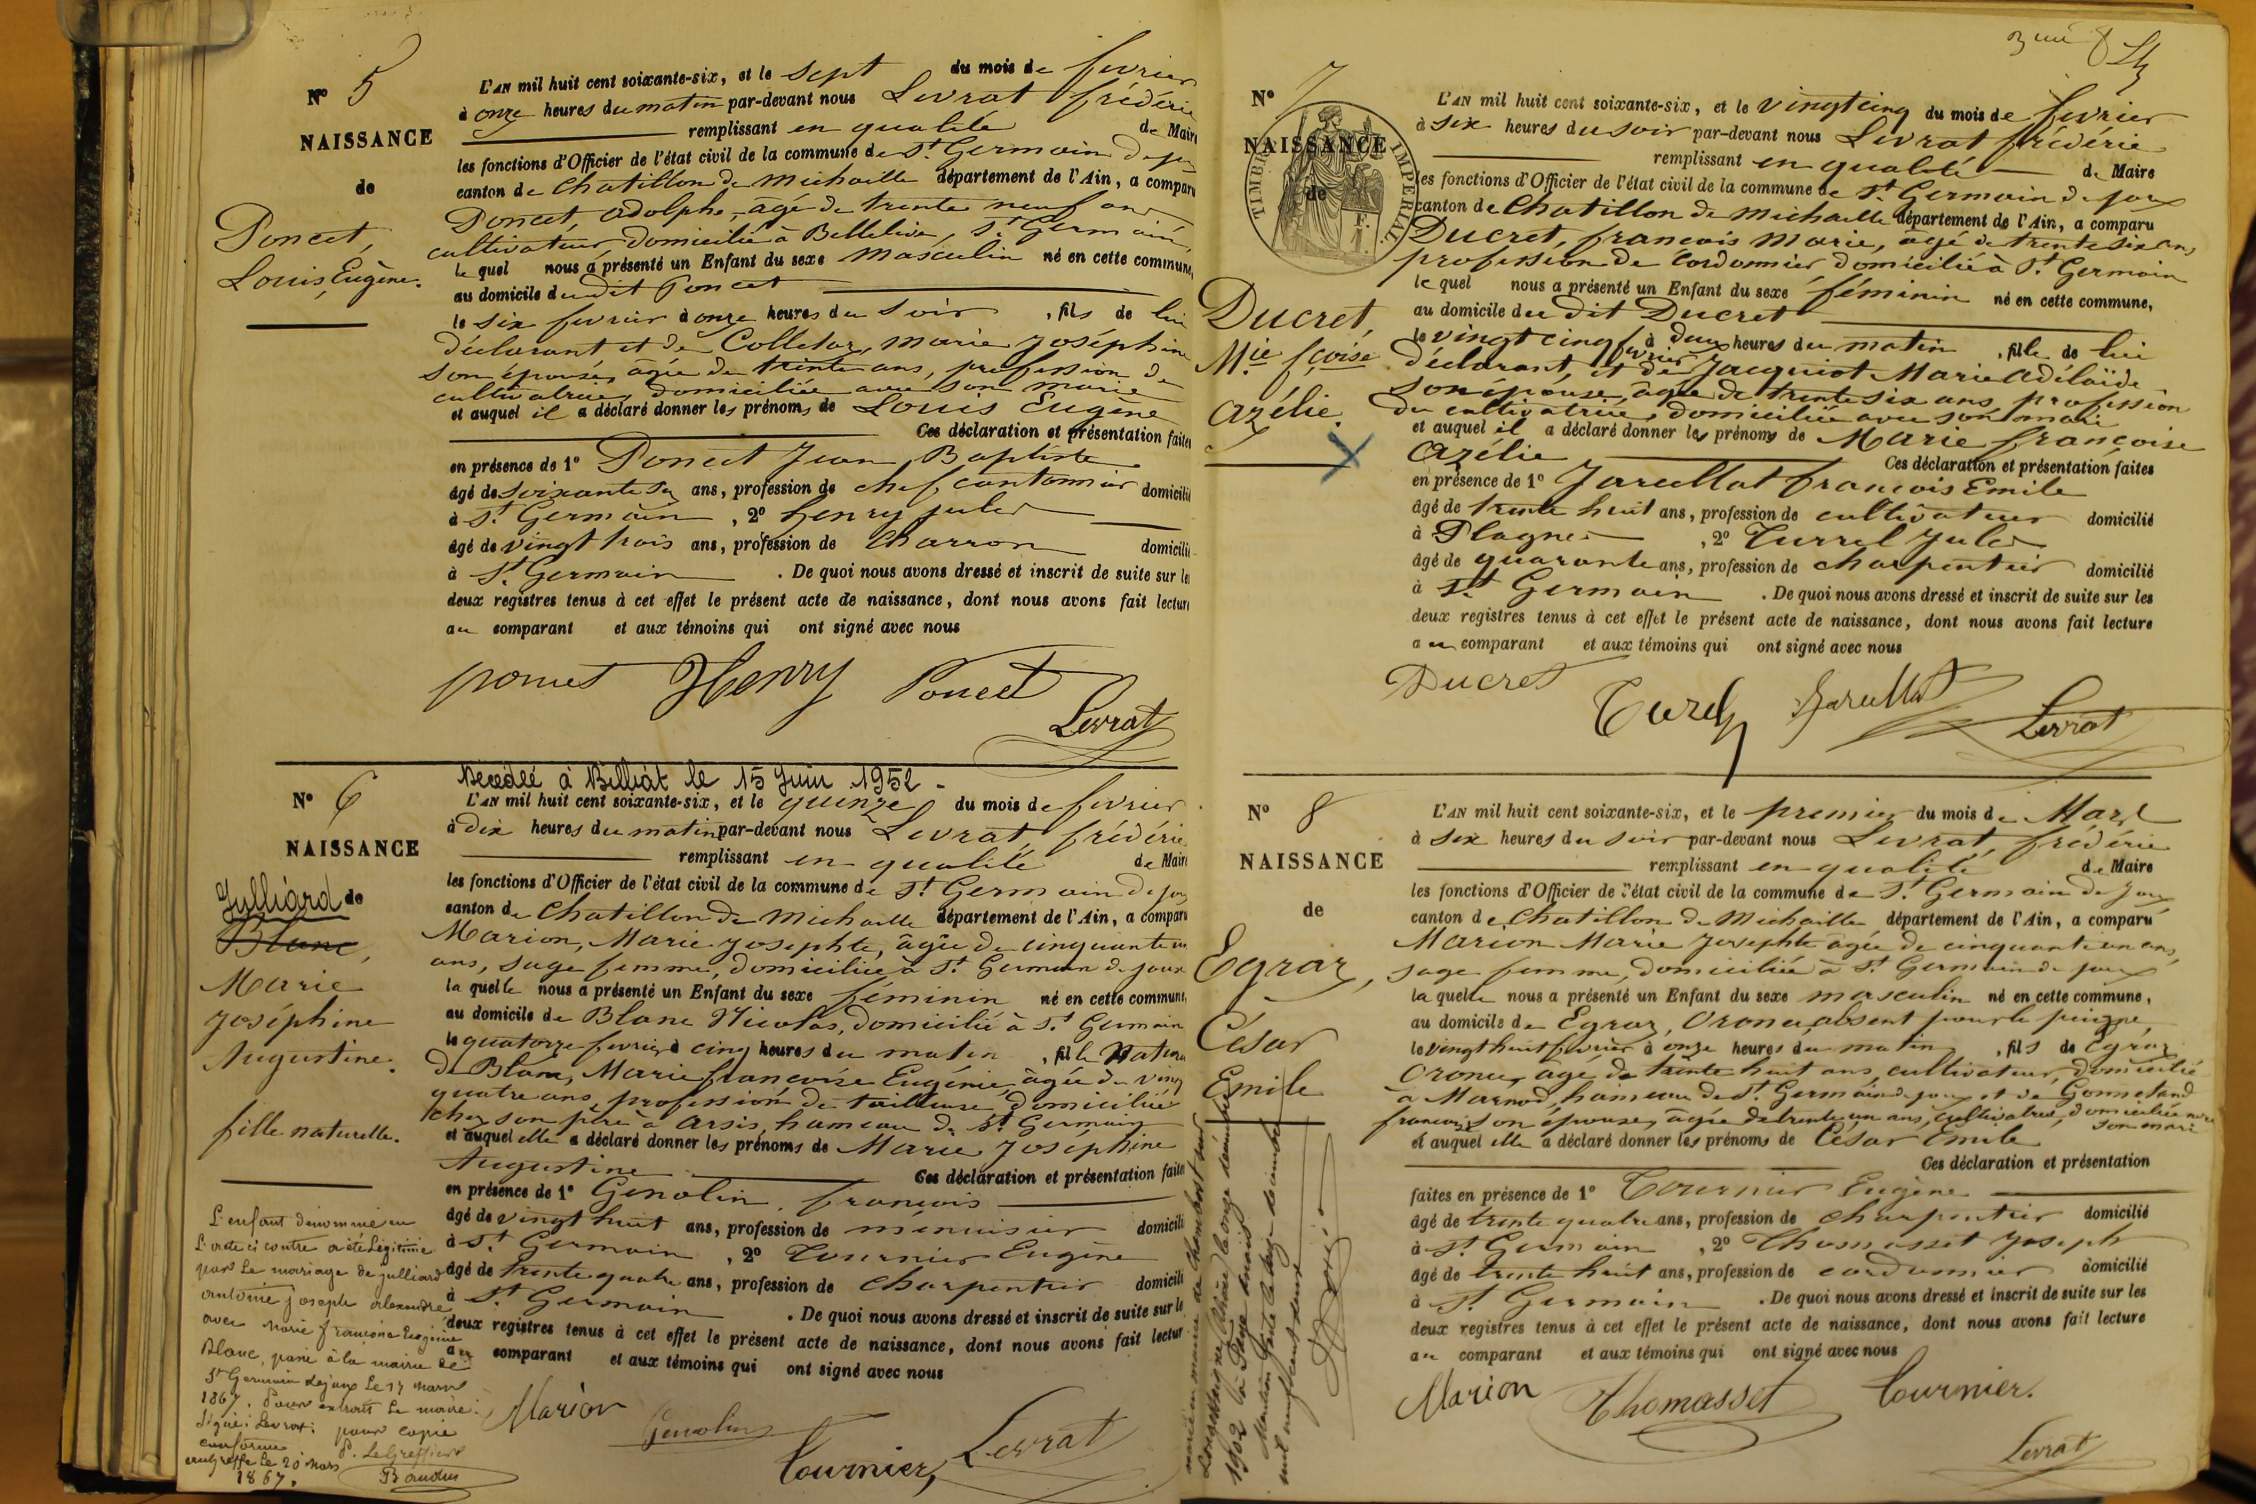 Nº 5
NAISSANCE
de
Poncet,
Louis Eugène.
L'AN mil huit cent soixante-six, et le sept du mois de fevrier
à onze heures du matin par-devant nous Levrat frédéric
remplissant en qualité de Maire
les fonctions d'Officier de l'état civil de la commune de St. Germain de joux
canton de Chatillon de Michaille département de l'Ain, a comparu
Poncet, adolphe, âgé de trente neuf ans
cultivateur, domicilié à Bellerive, St. Germain,
le quel nous a présenté un Enfant du sexe masculin né en cette commune,
au domicile du dit Poncet
le six fevrier à onze heures du soir, fils de lui
déclarant et de Colletaz, marie joséphine
son épouse, âgée de trente ans, profession de
cultivatrice, domiciliée avec son marie
et auquel il a déclaré donner les prénoms de Louis Eugène
Ces déclaration et présentation faites
en présence de 1º Poncet Jean Baptiste
âgé de soixante ans, profession de chef cantonnier domicilié
à St. Germain, 2º henry jules
âgé de vingt trois ans, profession de charron domicilié
à St. Germain. De quoi nous avons dressé et inscrit de suite sur les
deux registres tenus à cet effet le présent acte de naissance, dont nous avons fait lecture
au comparant et aux témoins qui ont signé avec nous
Henry Poncet
Levrat
Décédée à Billiat le 15 Juin 1952 -
Nº 6
NAISSANCE
de
Julliard
Blanc,
Marie
joséphine
Augustine.
fille naturelle.
L'AN mil huit cent soixante-six, et le quinze du mois de fevrier
à dix heures du matin par-devant nous Levrat, frédéric
remplissant en qualité de Maire
les fonctions d'Officier de l'état civil de la commune de St. Germain de joux
canton de Chatillon de Michaille département de l'Ain, a comparu
Marion, Marie josephte, âgée de cinquante un
ans, sage femme, domiciliée à St. Germain de joux
la quelle nous a présenté un Enfant du sexe féminin né en cette commune,
au domicile de Blanc Nicolas, domicilié à St. Germain
le quatorze fevrier à cinq heures du matin, fille Naturelle
de Blanc, Marie françoise Eugénie, âgée de vingt
quatre ans, profession de tailleuse, domiciliée
chez son père à Arsis, hameau de St. Germain
et auquel elle a déclaré donner les prénoms de Marie Joséphine
Augustine Ces déclaration et présentation faites
en présence de 1º Genolin, françois
âgé de vingt huit ans, profession de menuisier domicilié
à St. Germain, 2º Tournier Eugène
âgé de trente quatre ans, profession de charpentier domicilié
à St. Germain. De quoi nous avons dressé et inscrit de suite sur les
deux registres tenus à cet effet le présent acte de naissance, dont nous avons fait lecture
au comparant et aux témoins qui ont signé avec nous
Marion Genolin
Tournier, Levrat
L'enfant dénommé en
L'acte ci contre a été Légitimé
par Le mariage de julliard
antoine joseph alexandre
avec Marie françoise Eugénie
Blanc, passé à la mairie de
St Germain de joux Le 17 mars
1867. Pour extrait Le maire
signé: Levrat: pour copie
conforme
P. Le Greffier
au Greffe Le 20 Mars
1867.
Nº 7
NAISSANCE
de
TIMBRE IMPERIAL
Ducret,
Mie fçoise
azélie.
L'AN mil huit cent soixante-six, et le vingt cinq du mois de fevrier
à six heures du soir par-devant nous Levrat frédéric
remplissant en qualité de Maire
les fonctions d'Officier de l'état civil de la commune de St. Germain de joux
canton de Chatillon de Michaille département de l'Ain, a comparu
Ducret, françois Marie, âgé de trente six ans,
profession de cordonnier, domicilié à St. Germain
le quel nous a présenté un Enfant du sexe féminin né en cette commune,
au domicile du dit Ducret
le vingt cinq fevrier à deux heures du matin, fille de lui
déclarant, et de Jacquiot Marie Adélaïde
son épouse, âgée de trente six ans, profession
de cultivatrice, domiciliée avec son mari
et auquel il a déclaré donner les prénoms de Marie françoise
Azélie Ces déclaration et présentation faites
en présence de 1º Jarullat françois Emile
âgé de trente huit ans, profession de cultivateur domicilié
à Plagnes, 2º Turrel Jules
âgé de quarante ans, profession de charpentier domicilié
à St. Germain. De quoi nous avons dressé et inscrit de suite sur les
deux registres tenus à cet effet le présent acte de naissance, dont nous avons fait lecture
au comparant et aux témoins qui ont signé avec nous
Ducret
Levrat
Nº 8
NAISSANCE
de
Egraz,
César
Emile
L'AN mil huit cent soixante-six, et le premier du mois de Mars
à six heures du soir par-devant nous Levrat, frédéric
remplissant en qualité de Maire
les fonctions d'Officier de l'état civil de la commune de St. Germain de joux
canton de Chatillon de Michaille département de l'Ain, a comparu
Marion Marie josephte âgée de cinquante un ans,
sage femme, domiciliée à St. Germain de joux
la quelle nous a présenté un Enfant du sexe masculin né en cette commune,
au domicile de Egraz, Oronce, absent pour le peigne,
le vingt huit fevrier à onze heures du matin, fils de Egraz
Oronce, âgé de trente huit ans, cultivateur, domicilié
à Marnod, hameau de St. Germain de joux et de Gonnetand
françoise son épouse, âgée de trente un ans, cultivatrice, domiciliée avec
son mari
et auquel elle a déclaré donner les prénoms de César Emile
Ces déclaration et présentation
faites en présence de 1º Tournier Eugène
âgé de trente quatre ans, profession de charpentier domicilié
à St. Germain, 2º Thomasset Joseph
âgé de trente huit ans, profession de cordonnier domicilié
à St. Germain. De quoi nous avons dressé et inscrit de suite sur les
deux registres tenus à cet effet le présent acte de naissance, dont nous avons fait lecture
au comparant et aux témoins qui ont signé avec nous
Marion Thomasset Tournier.
Levrat